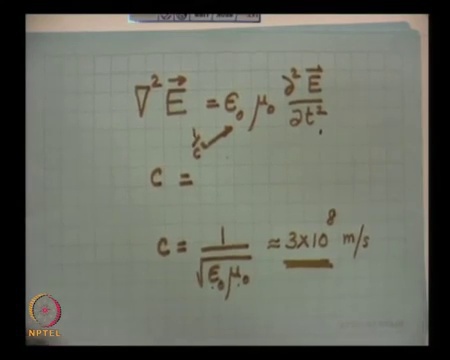 ∇² E⃗ = ε₀ μ₀ ∂² E⃗ / ∂t²
1/c²
c =
c = 1/√(ε₀ μ₀) ≈ 3×10⁸ m/s
NPTEL